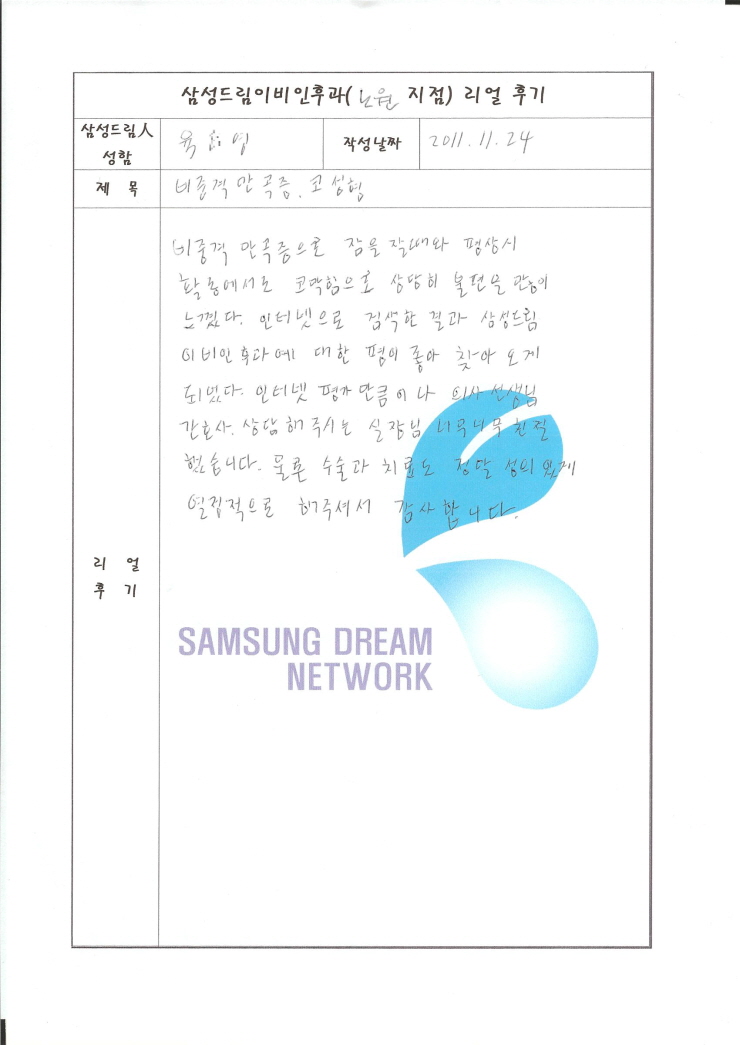 삼성드림이비인후과( 노원 지점) 리얼 후기
삼성드림人
성함
작성날짜
2011. 11. 24
제 목
비중격 만곡증, 코 성형
비중격 만곡증으로 잠을 잘때와 평상시
활동에서도 코막힘으로 상당히 불편을 많이
느꼈다. 인터넷으로 검색한 결과 삼성드림
이비인후과에 대한 평이 좋아 찾아 오게
되었다. 인터넷 평가 만큼이나 의사 선생님
간호사, 상담해 주시는 실장님 너무너무 친절
했습니다. 물론 수술과 치료도 정말 성의 있게
열정적으로 해주셔서 감사합니다.
리 얼
후 기
SAMSUNG DREAM
NETWORK